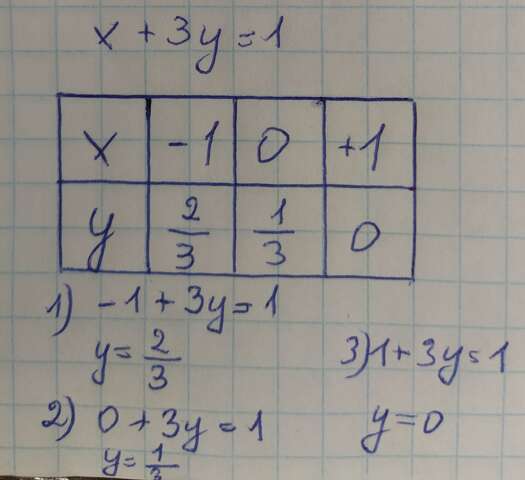 x + 3y = 1
x -1 0 +1
y 2/3 1/3 0
1) -1 + 3y = 1
y = 2/3
2) 0 + 3y = 1
y = 1/3
3) 1 + 3y = 1
y = 0